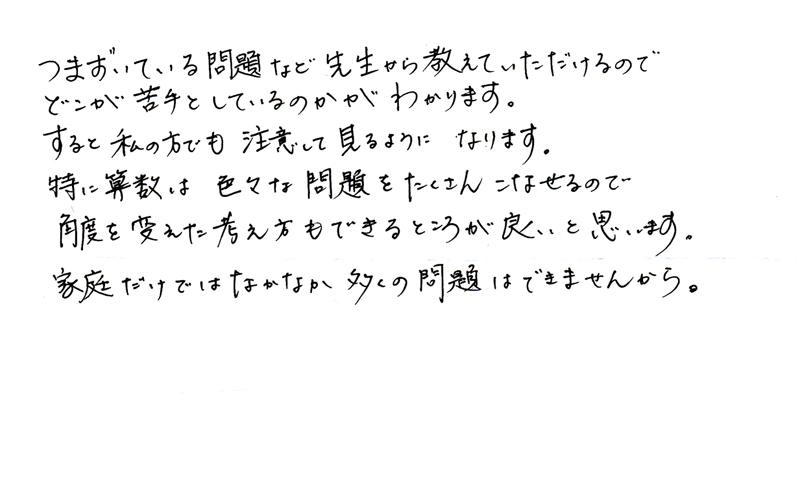 つまずいている問題など先生から教えていただけるので
どこが苦手としているのかがわかります。
すると私の方でも注意して見るようになります。
特に算数は色々な問題をたくさんこなせるので
角度を変えた考え方もできるところが良いと思います。
家庭だけではなかなか多くの問題はできませんから。